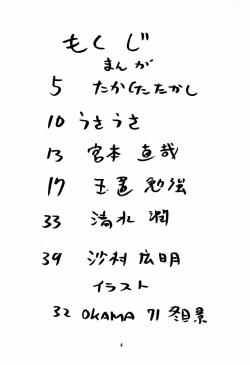 もくじ
まんが
5 たかはたたかし
10 うさうさ
13 宮本 直哉
17 玉置 勉強
33 清水 潤
39 沙村 広明
イラスト
32 OKAMA 71